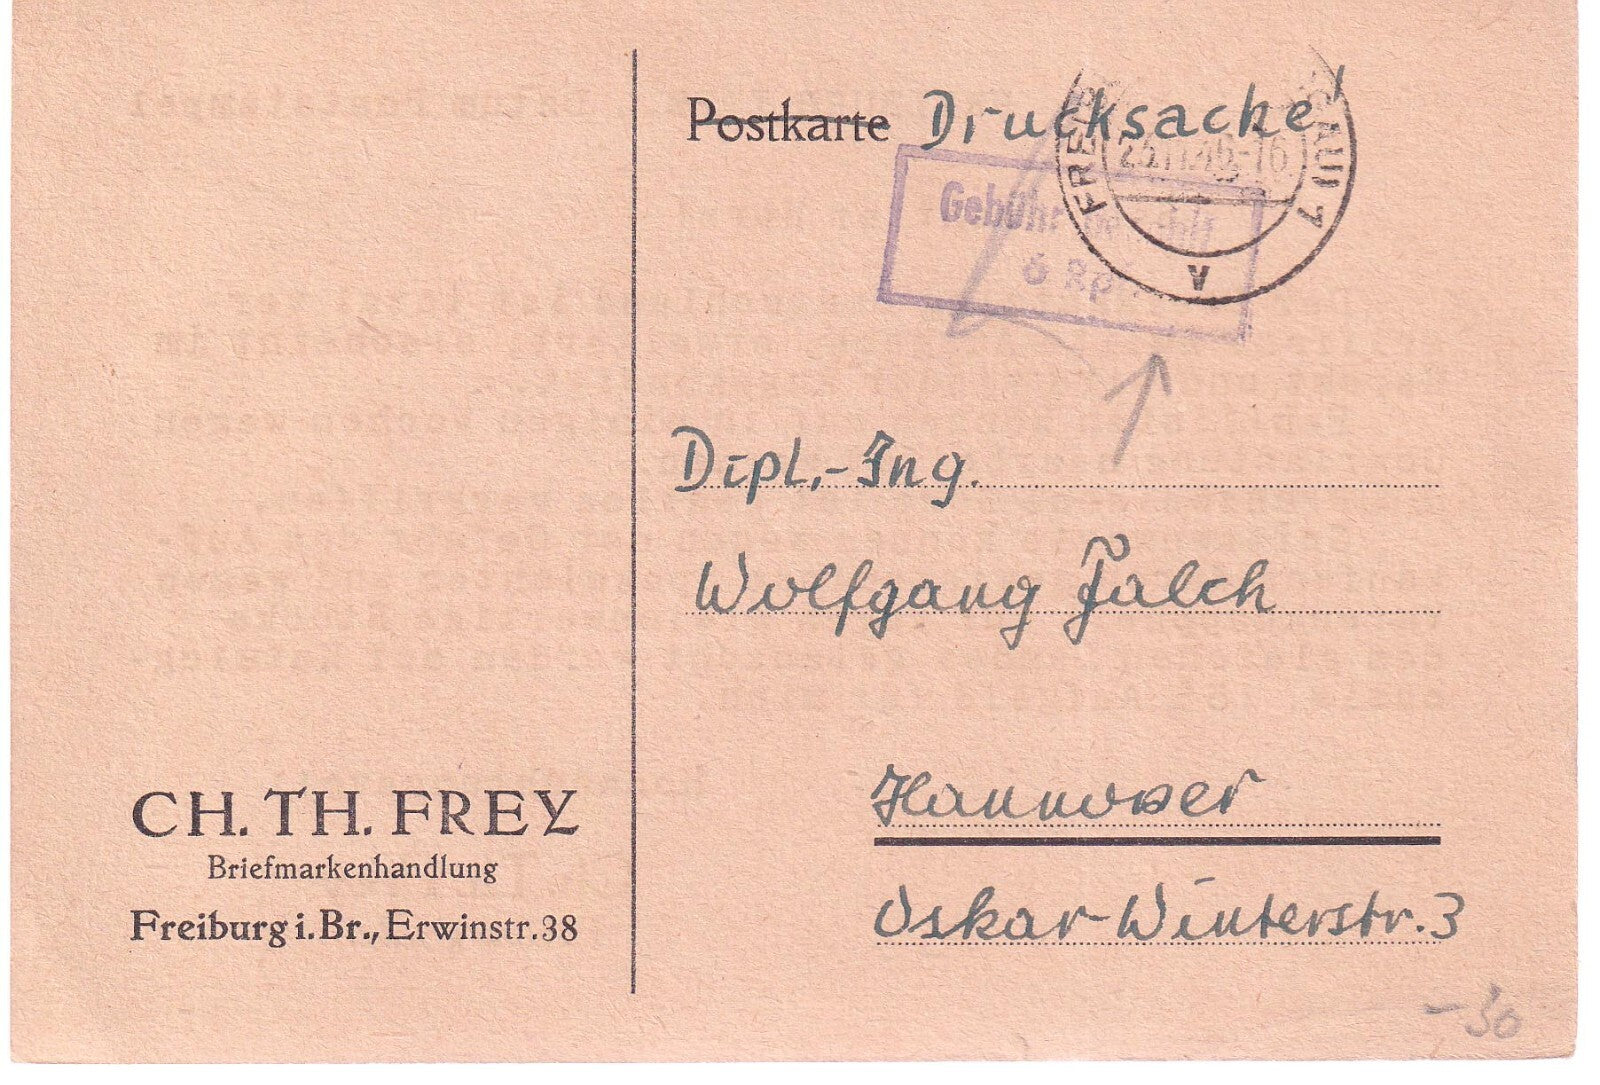 Postkarte Drucksache!
Gebühr bezahlt
6 Rpf
V
Dipl.-Ing.
Wolfgang Falch
Hannover
Oskar-Winterstr. 3
CH. TH. FREY
Briefmarkenhandlung
Freiburg i. Br., Erwinstr. 38
-30